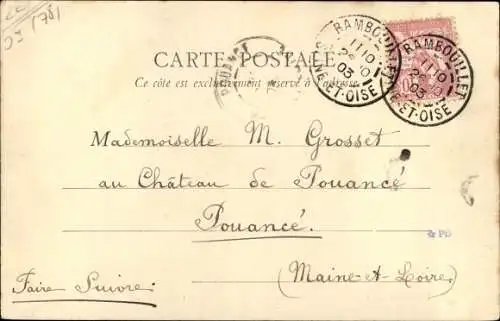 (78)
RAMBOUILLET
11 10
03
SEINE-ET-OISE
RAMBOUILLET
11 10
03
ET-OISE
POUANCÉ
CARTE POSTALE
Ce côté est exclusivement réservé à l'adresse
Mademoiselle M. Grosset
au Château de Pouancé
Pouancé.
(Maine-et-Loire)
Faire Suivre: